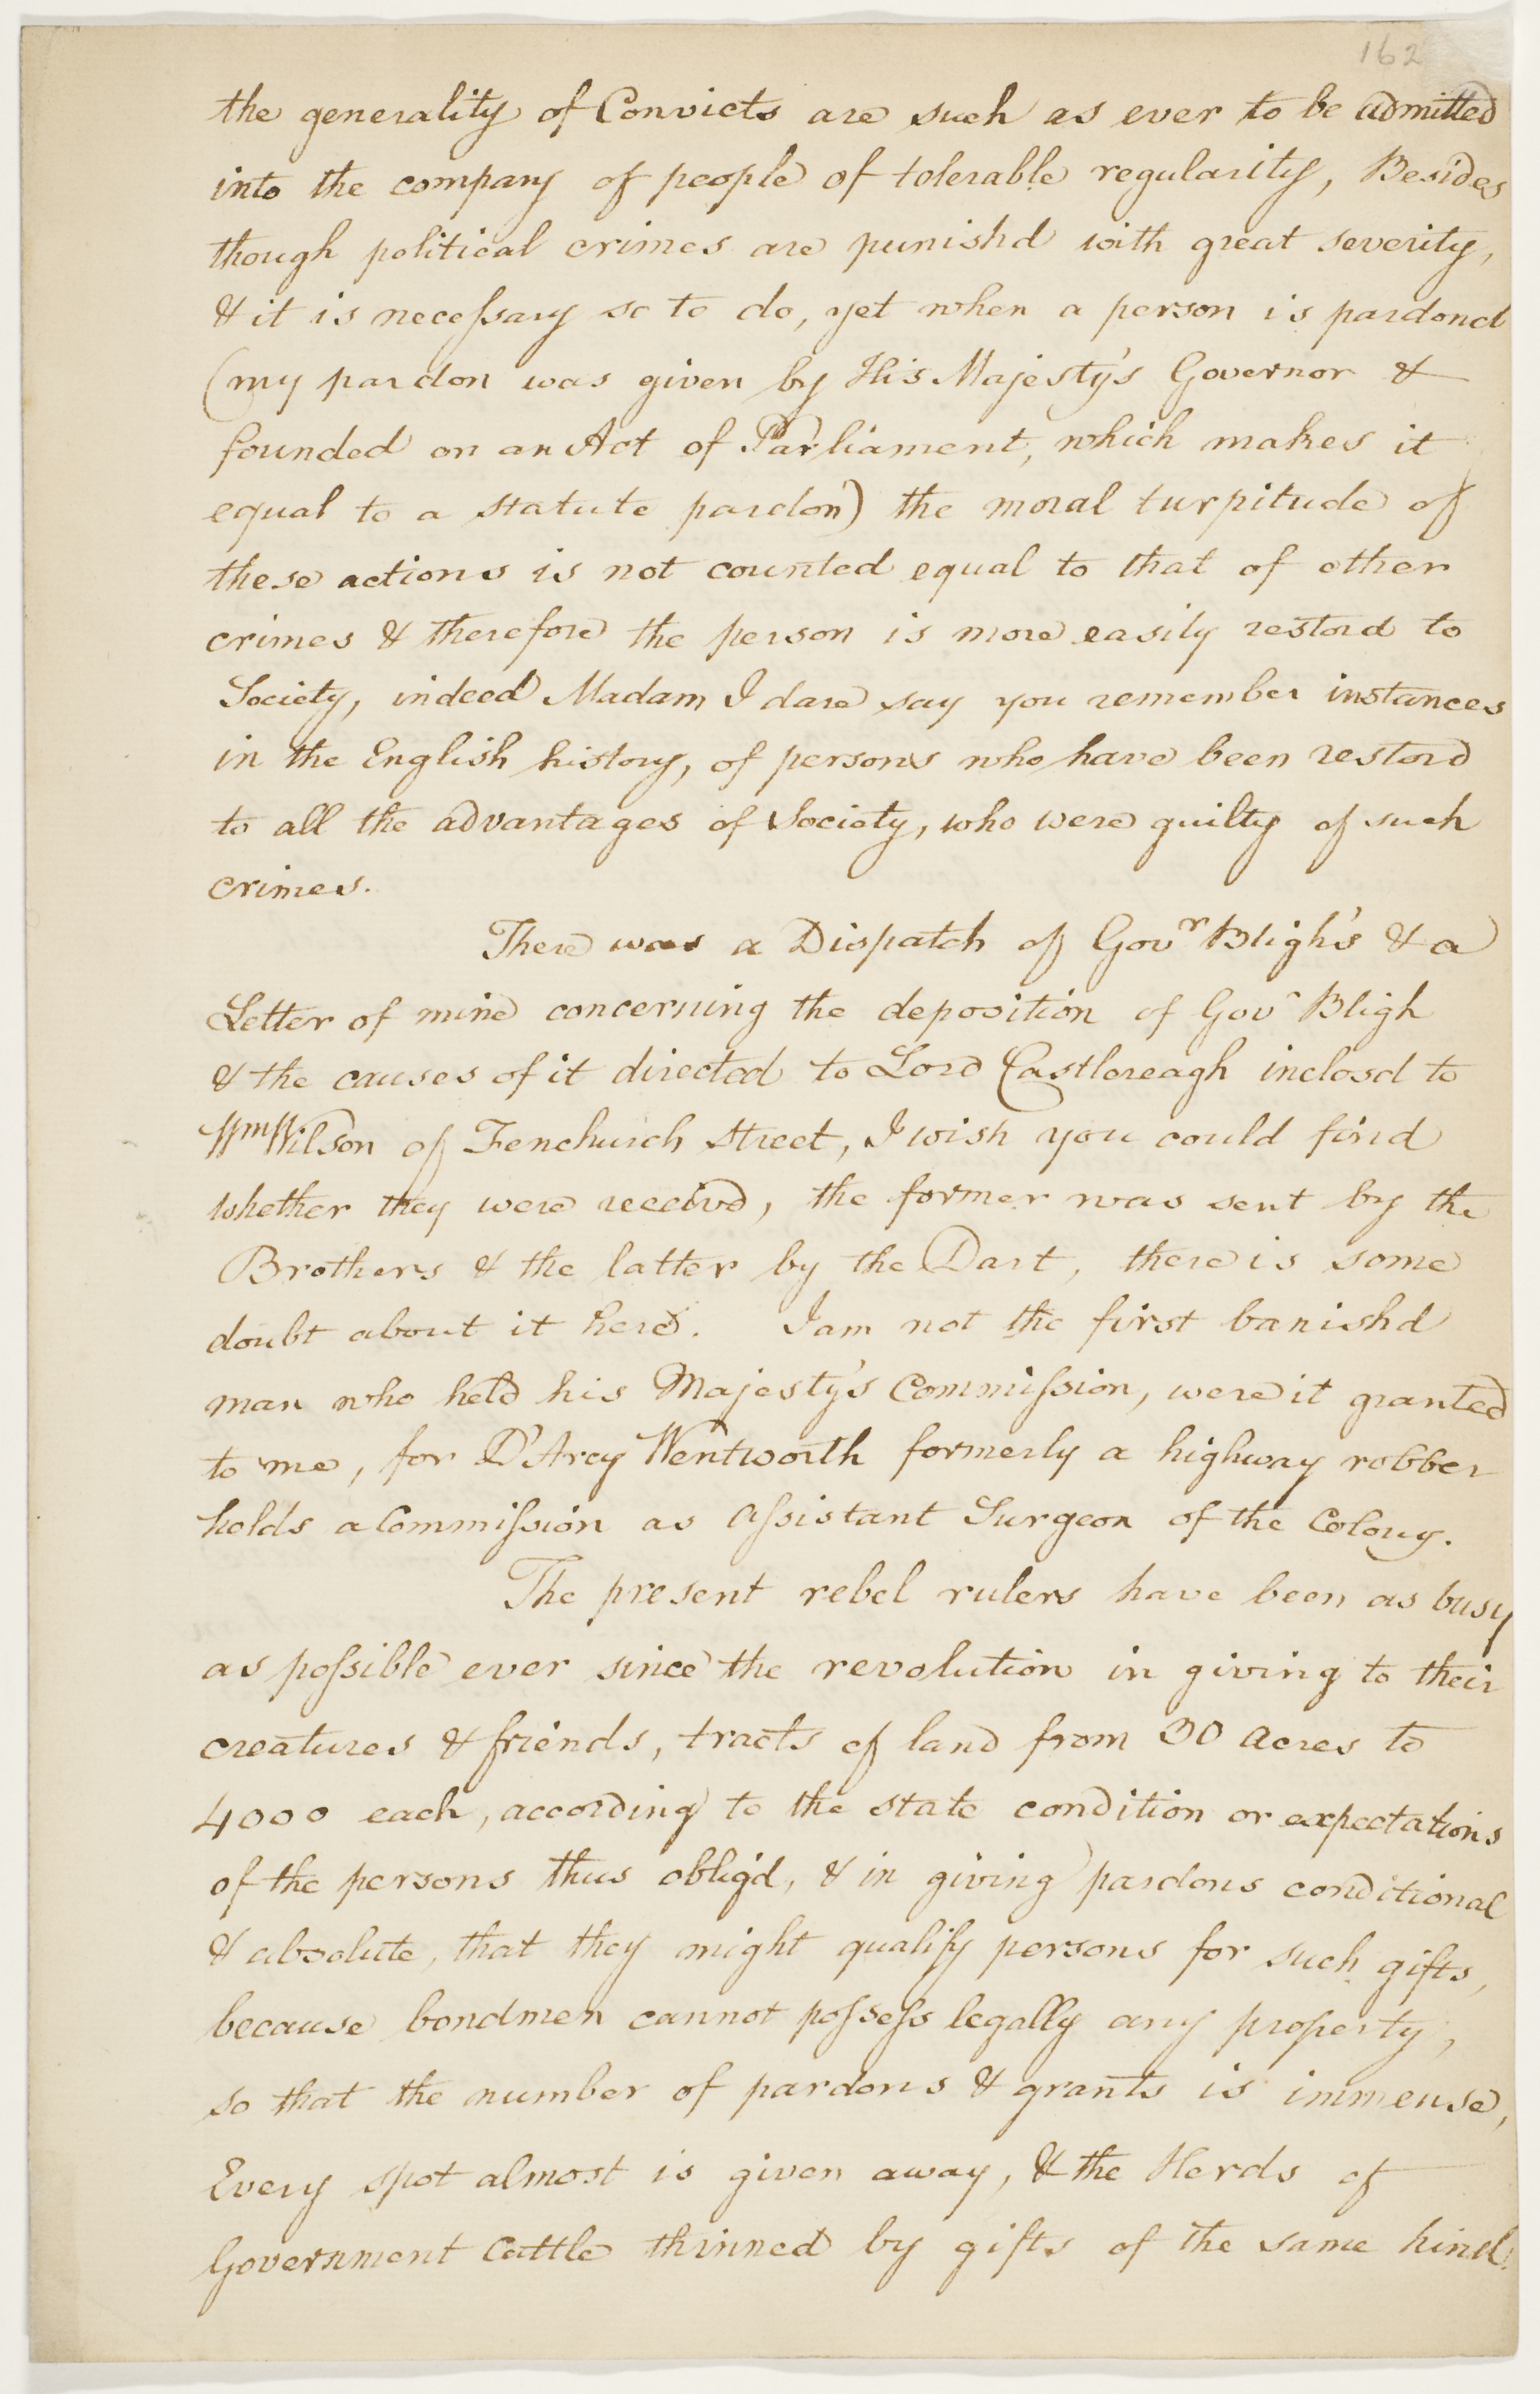 162
the generality of Convicts are such as ever to be admitted
into the company of people of tolerable regularity, Besides
though political crimes are punishd with great severity,
& it is necessary so to do, yet when a person is pardond
(my pardon was given by His Majesty's Governor &
founded on an Act of Parliament, which makes it
equal to a statute pardon) the moral turpitude of
these actions is not counted equal to that of other
crimes & therefore the person is more easily restord to
Society, indeed Madam I dare say you remember instances
in the English history, of persons who have been restord
to all the advantages of Society, who were guilty of such
crimes.
There was a Dispatch of Govr Bligh's & a
Letter of mine concerning the deposition of Govr Bligh
& the causes of it directed to Lord Castlereagh inclosd to
Wm Wilson of Fenchurch Street, I wish you could find
whether they were receivd, the former was sent by the
Brothers & the latter by the Dart, there is some
doubt about it here. I am not the first banishd
man who held his Majesty's Commission, were it granted
to me, for D'Arcy Wentworth formerly a highway robber
holds a Commission as Assistant Surgeon of the Colony.
The present rebel rulers have been as busy
as possible ever since the revolution in giving to their
creatures & friends, tracts of land from 30 Acres to
4000 each, according to the state condition or expectations
of the persons thus oblig'd, & in giving pardons conditional
& absolute, that they might qualify persons for such gifts,
because bondmen cannot possess legally any property,
so that the number of pardons & grants is immense,
Every spot almost is given away, & the Herds of
Government Cattle thinned by gifts of the same kind.